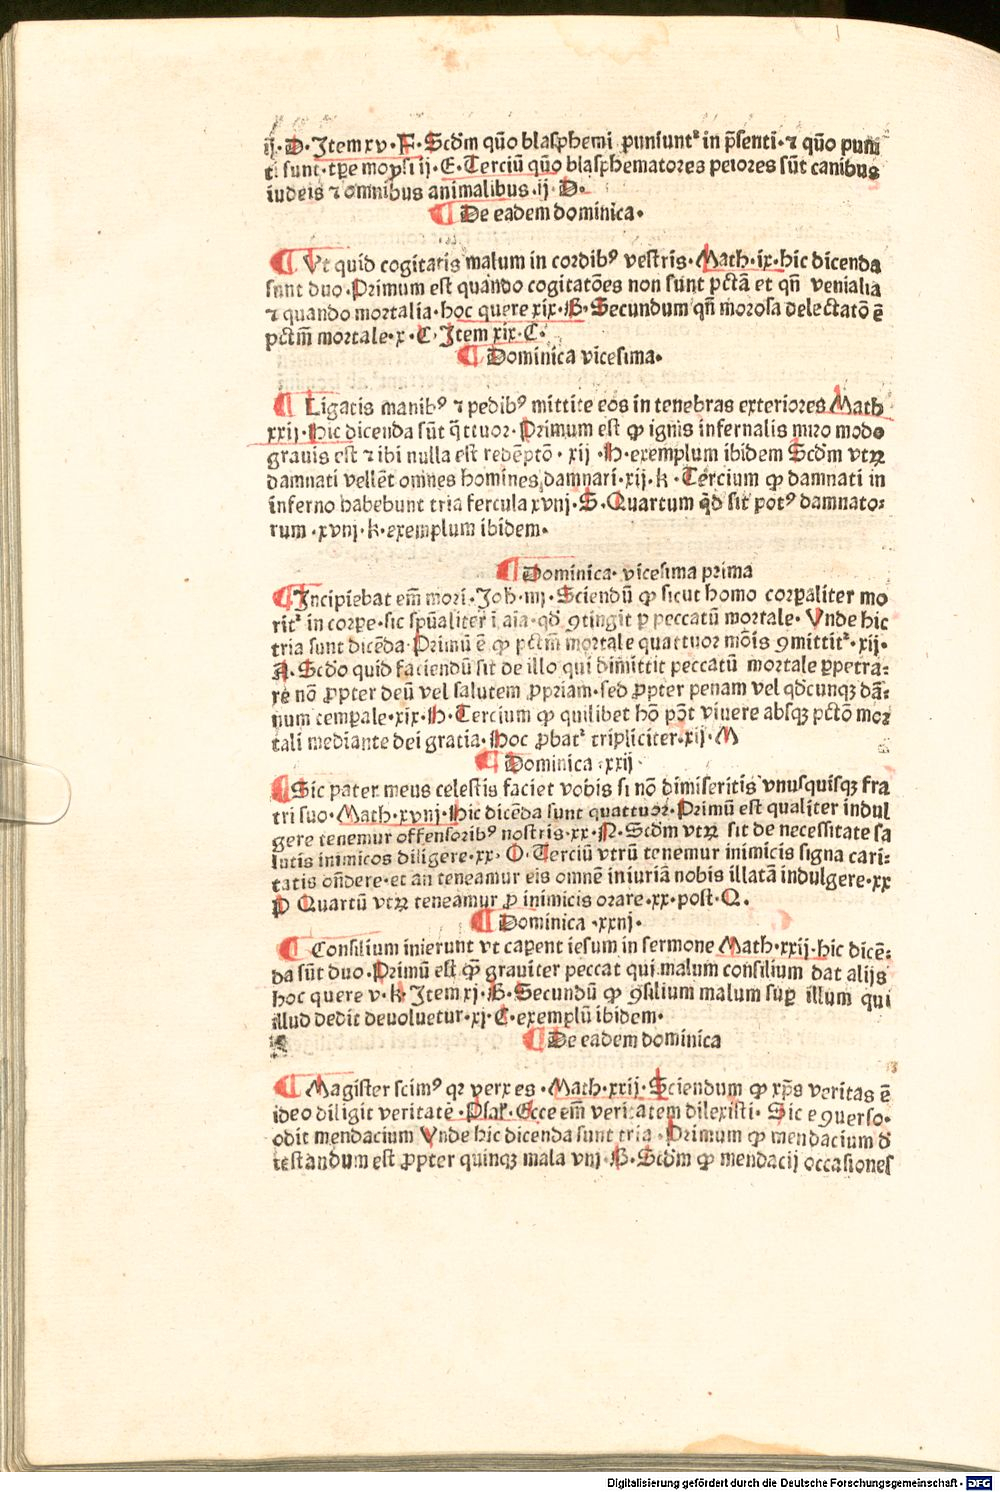 ij·D·Item xv·F·Scd̄m qūo blasphemi puniunt᷑ in p̄senti·⁊ qūo puni
ti sunt·tp̄e moysi ij·E·Terciū qūo blasphematores peiores sūt canibus
iudeis ⁊ omnibus animalibus·ij·D·
¶ De eadem dominica·
¶ Ut quid cogitatis malum in cordibꝰ vestris·Math·ix·hic dicenda
sunt duo·Primum est quando cogitatōes non sunt pctā et qn̄ venialia
⁊ quando mortalia·hoc quere xix·B·Secundum qn̄ morosa delectatō ē
pctm̄ mortale·x·C·Item xix·C·
¶ Dominica vicesima·
¶ Ligatis manibꝰ ⁊ pedibꝰ mittite eos in tenebras exteriores Math
xxij·Hic dicenda sūt q̄ttuor·Primum est ꝙ ignis infernalis miro modo
grauis est ⁊ ibi nulla est redēptō·xij·H·exemplum ibidem Scd̄m vtꝝ
damnati vellēt omnes homines damnari·xij·k·Tercium ꝙ damnati in
inferno habebunt tria fercula xvnj·S·Quartum qd̄ sit potꝰ damnato⸗
rum·xvnj·k·exemplum ibidem·
¶ Dominica·vicesima prima
¶ Incipiebat em̄ mori·Joh·iiij·Sciendū ꝙ sicut homo corꝑaliter mo
rit᷑ in corꝑe·sic spūaliter ī aīa·qd̄ ꝯtingit ꝑ peccatū mortale·Vnde hic
tria sunt dicēda·Primū ē ꝙ pctm̄ mortale quattuor mōis ꝯmittit᷑·xij·
A·Scdo quid faciendū sit de illo qui dimittit peccatū mortale ꝑpetra⸗
re nō ꝓpter deū vel salutem ꝓpriam·sed ꝓpter penam vel qdcunqꝫ dā⸗
num temꝑale·xix·H·Tercium ꝙ quilibet hō pōt viuere absqꝫ pctō moꝛ
tali mediante dei gratia·Hoc ꝓbat᷑ tripliciter·xij·M
¶ Dominica·xxij·
¶ Sic pater meus celestis faciet vobis si nō dimiseritis vnusquisqꝫ fra
tri suo·Math·xvnj·Hic dicēda sunt quattuor·Primū est qualiter indul
gere tenemur offensoribꝰ nostris·xx·N·Scd̄m vtꝝ sit de necessitate sa
lutis inimicos diligere·xx·O·Terciū vtrū tenemur inimicis signa cari⸗
tatis on̄dere·et an teneamur eis omnē iniuriā nobis illatā indulgere·xx
P Quartū vtꝝ teneamur ꝓ inimicis orare·xx·post·Q·
¶ Dominica·xxnj·
¶ Consilium inierunt vt caꝑent iesum in sermone Math·xxij·hic dicē⸗
da sūt duo·Primū est ꝙ grauiter peccat qui malum consilium dat alijs
hoc quere v·k·Item xj·B·Secundū ꝙ ꝯsilium malum suꝑ illum qui
illud dedit deuoluetur·xj·C·exemplū ibidem·
¶ De eadem dominica
¶ Magister scimꝰ qꝛ verx es·Math·xxij·Sciendum ꝙ xp̄s veritas ē
ideo diligit veritatē·Psal̄·Ecce em̄ veritatem dilexisti·Sic e ꝯuerso·
odit mendacium Vnde hic dicenda sunt tria·Primum ꝙ mendacium d̄
testandum est ꝓpter quinqꝫ mala vnj·B·Scd̄m ꝙ mendacij occasiones
Digitalisierung gefördert durch die Deutsche Forschungsgemeinschaft · DFG